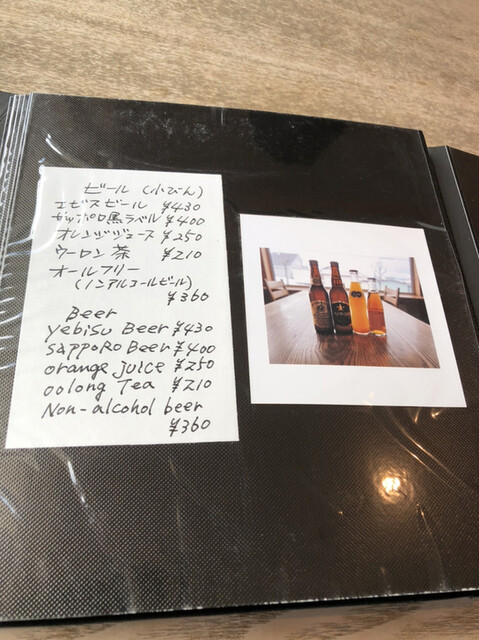 ビール (小びん)
エビスビール ¥430
サッポロ黒ラベル ¥400
オレンジジュース ¥250
ウーロン茶 ¥210
オールフリー
(ノンアルコールビール)
¥360
Beer
Yebisu Beer ¥430
Sapporo Beer ¥400
orange juice ¥250
oolong Tea ¥210
Non-alcohol beer
¥360